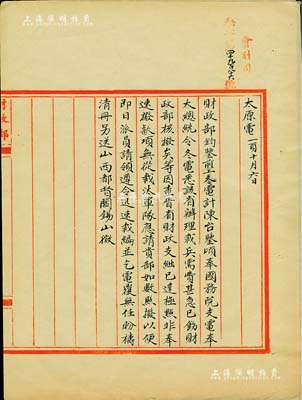 上海泓盛
会計司
太原電一百十月六日
財政部鈞鑒堅冬電計陳台鑒頃奉國務院支電奉
大總統令冬電悉該省辦理裁兵需費甚急已飭財
政部核撥矣等因查晋省財政支絀已達極點非奉
速撥款項無從裁汰軍隊應請貴部如數照撥以便
即日派員請領遵令迅速裁編並乞電覆無任盼禱
清冊另送山西都督閻錫山微
財政部
上海泓盛